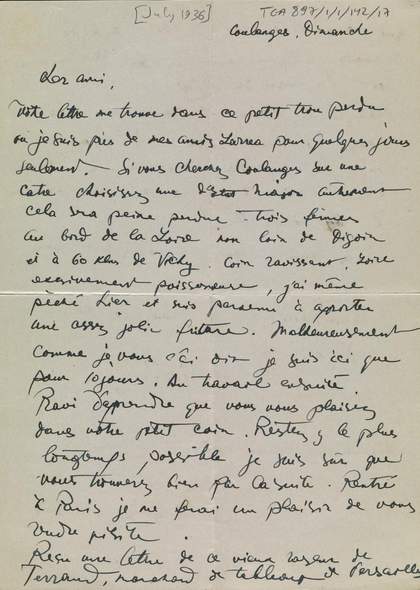 [July 1936] TGA 897/1/1/142/17
Coulanges, Dimanche
Cher ami,
Votre lettre me trouve dans ce petit trou perdu
ou je suis près de mes amis Larrea pour quelques jours
seulement. Si vous cherchez Coulanges sur une
carte choisissez une d'état major autrement
cela sera peine perdue. Trois fermes
au bord de la Loire non loin de Digoin
et à 60 klm de Vichy. Coin ravissant. Loire
excessivement poissonneuse, j'ai même
pêché hier et suis parvenu à apporter
une assez jolie friture. Malheureusement
comme je vous dit je suis ici que
pour 10 jours. Au travail ensuite.
Ravi d'aprendre que vous vous plaisez
dans votre petit coin. Restez y le plus
longtemps possible je suis sûr que
vous trouverez bien par la suite. Rentré
à Paris je me ferai un plaisir de vous
rendre visite.
Reçu une lettre de ce vieux raseur de
Terrand, marchand de tableaux de Versailles